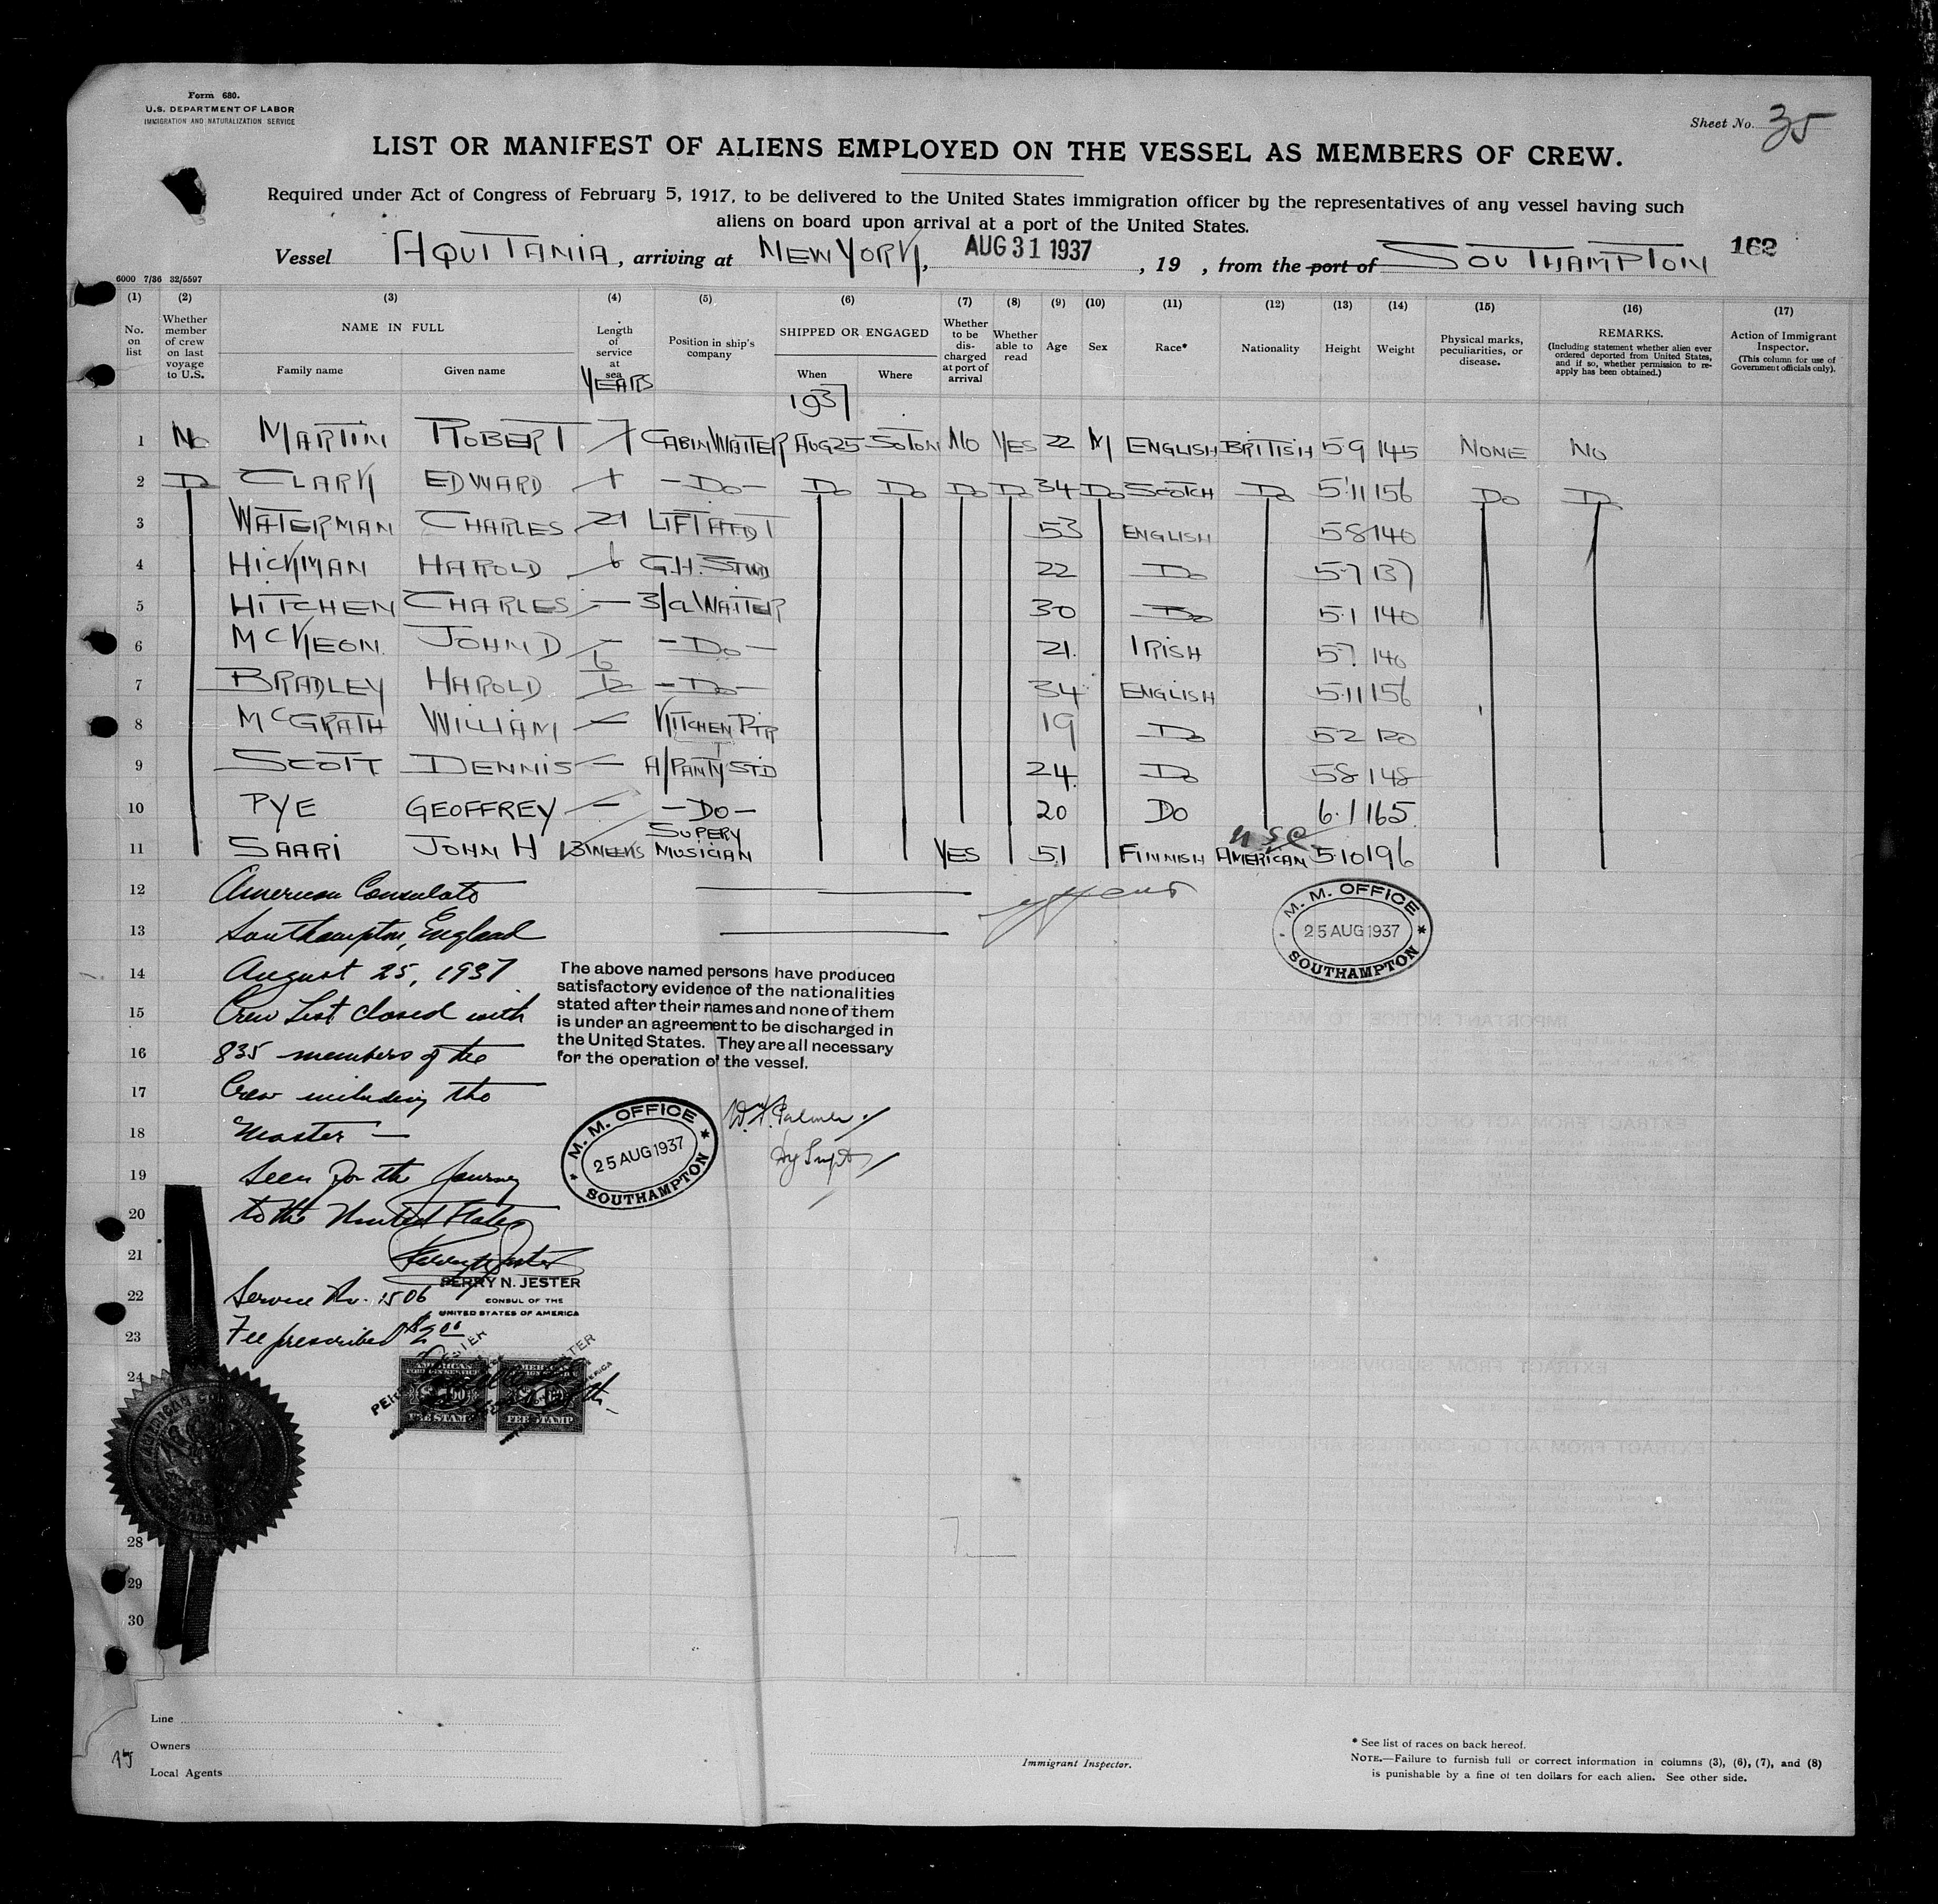 Form 680.
U.S. DEPARTMENT OF LABOR
IMMIGRATION AND NATURALIZATION SERVICE
Sheet No. 35
LIST OR MANIFEST OF ALIENS EMPLOYED ON THE VESSEL AS MEMBERS OF CREW.
Required under Act of Congress of February 5, 1917, to be delivered to the United States immigration officer by the representatives of any vessel having such
aliens on board upon arrival at a port of the United States.
Vessel AQUITANIA, arriving at NEW YORK, AUG 31 1937, 19 , from the port of SOUTHAMPTON 162
6000 7/36 32/5597
(1) (2) (3) (4) (5) (6) (7) (8) (9) (10) (11) (12) (13) (14) (15) (16) (17)
No. on list
Whether member of crew on last voyage to U.S.
NAME IN FULL
Family name Given name
Length of service at sea
YEARS
Position in ship's company
SHIPPED OR ENGAGED
When Where
1937
Whether to be discharged at port of arrival
Whether able to read
Age Sex Race* Nationality Height Weight
Physical marks, peculiarities, or disease.
REMARKS.
(Including statement whether alien ever ordered deported from United States, and if so, whether permission to re-apply has been obtained.)
Action of Immigrant Inspector.
(This column for use of Government officials only).
1 No MARTIN ROBERT 7 CABIN WAITER AUG 25 SOTON NO YES 22 M ENGLISH BRITISH 5 9 145 NONE NO
2 Do CLARK EDWARD -Do- Do Do Do Do 34 Do SCOTCH Do 5.11 156 Do Do
3 WATERMAN CHARLES 21 LIFT ATTDT 53 ENGLISH 5 8 140
4 HICKMAN HAROLD 6 G.H. STWD 22 Do 5.7 137
5 HITCHEN CHARLES — 3/CL WAITER 30 Do 5.1 140
6 McKEON JOHN D — -Do- 21. IRISH 5 7. 140
7 BRADLEY HAROLD 6/12 -Do- 34 ENGLISH 5.11 156
8 McGRATH WILLIAM — KITCHEN PTR 19 Do 5 2 120
9 SCOTT DENNIS — A/PANTY STD 24. Do 5 8 148
10 PYE GEOFFREY — -DO- 20 DO 6.1 165.
11 SAARI JOHN H 13 WEEKS SUPERY MUSICIAN YES 51 FINNISH USC AMERICAN 5.10 196
12 American Consulate
13 Southampton, England
14 August 25, 1937
15 Crew List closed with
16 835 members of the
17 Crew including the
18 Master —
19 Seen for the journey
20 to the United States
21
PERRY N. JESTER
CONSUL OF THE
UNITED STATES OF AMERICA
22 Service No. 1506
23 Fee prescribed $2.00
24
28
29
30
The above named persons have produced
satisfactory evidence of the nationalities
stated after their names and none of them
is under an agreement to be discharged in
the United States. They are all necessary
for the operation of the vessel.
M. M. OFFICE
25 AUG 1937
SOUTHAMPTON
M. M. OFFICE
25 AUG 1937
SOUTHAMPTON
AMERICAN
FEE STAMP
FEE STAMP
Line
Owners
Local Agents
Immigrant Inspector.
* See list of races on back hereof.
NOTE.—Failure to furnish full or correct information in columns (3), (6), (7), and (8)
is punishable by a fine of ten dollars for each alien. See other side.